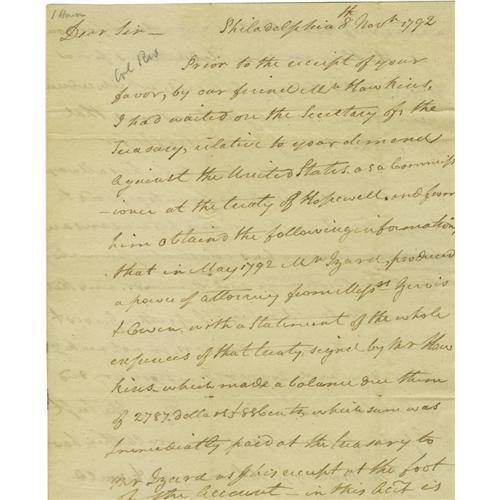 1 Hour
Dear Sir— Philadelphia 8th Novr. 1792
Col Res
Prior to the receipt of your
favor, by our friend Mr Hawkins,
I had waited on the Secretary of the
Treasury, relative to your demand
against the United States as a Commiss
-ioner at the treaty of Hopewell, and from
him obtaind the following information,
that in May 1792 Mr Izard, produced
a power of attorney from Messrs Gervis
& Owen with a Statement of the whole
expences of that treaty, signed by Mr Haw
kins which made a balance due them
of 2787. dollars & 88 Cents, which sum was
immediatly paid at the treasury to
Mr Izard as his receipt at the foot
of the Account — in this Acct is